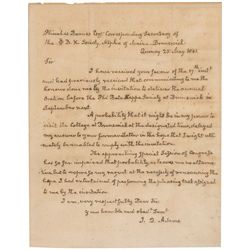 Phinehas Barnes Esqr. Corresponding Secretary of
the Φ. B. K. Society, Alpha of Maine. Brunswick
Quincy 25 May 1841.
Sir
I have received your favour of the 17th inst.
and had previously received that communicating to me the
honour done me by the invitation to deliver the annual
oration before the Phi Beta Kappa Society at Brunswick in
September next.
A probability that it might be in my power to
visit the College at Brunswick at the designated time, delayed
my answer to your former letter in the hope that I might ulti-
mately be enabled to comply with the invitation.
The approaching special Session of Congress
has so far impaired that probability as leaves me no alterna-
tive, but to express my regret at the necessity of renouncing the
hope I had entertained of performing the pleasing task assigned
to me by the invitation
I am, very respectfully Dear Sir
your humble and obedt. Servt.
J. Q. Adams